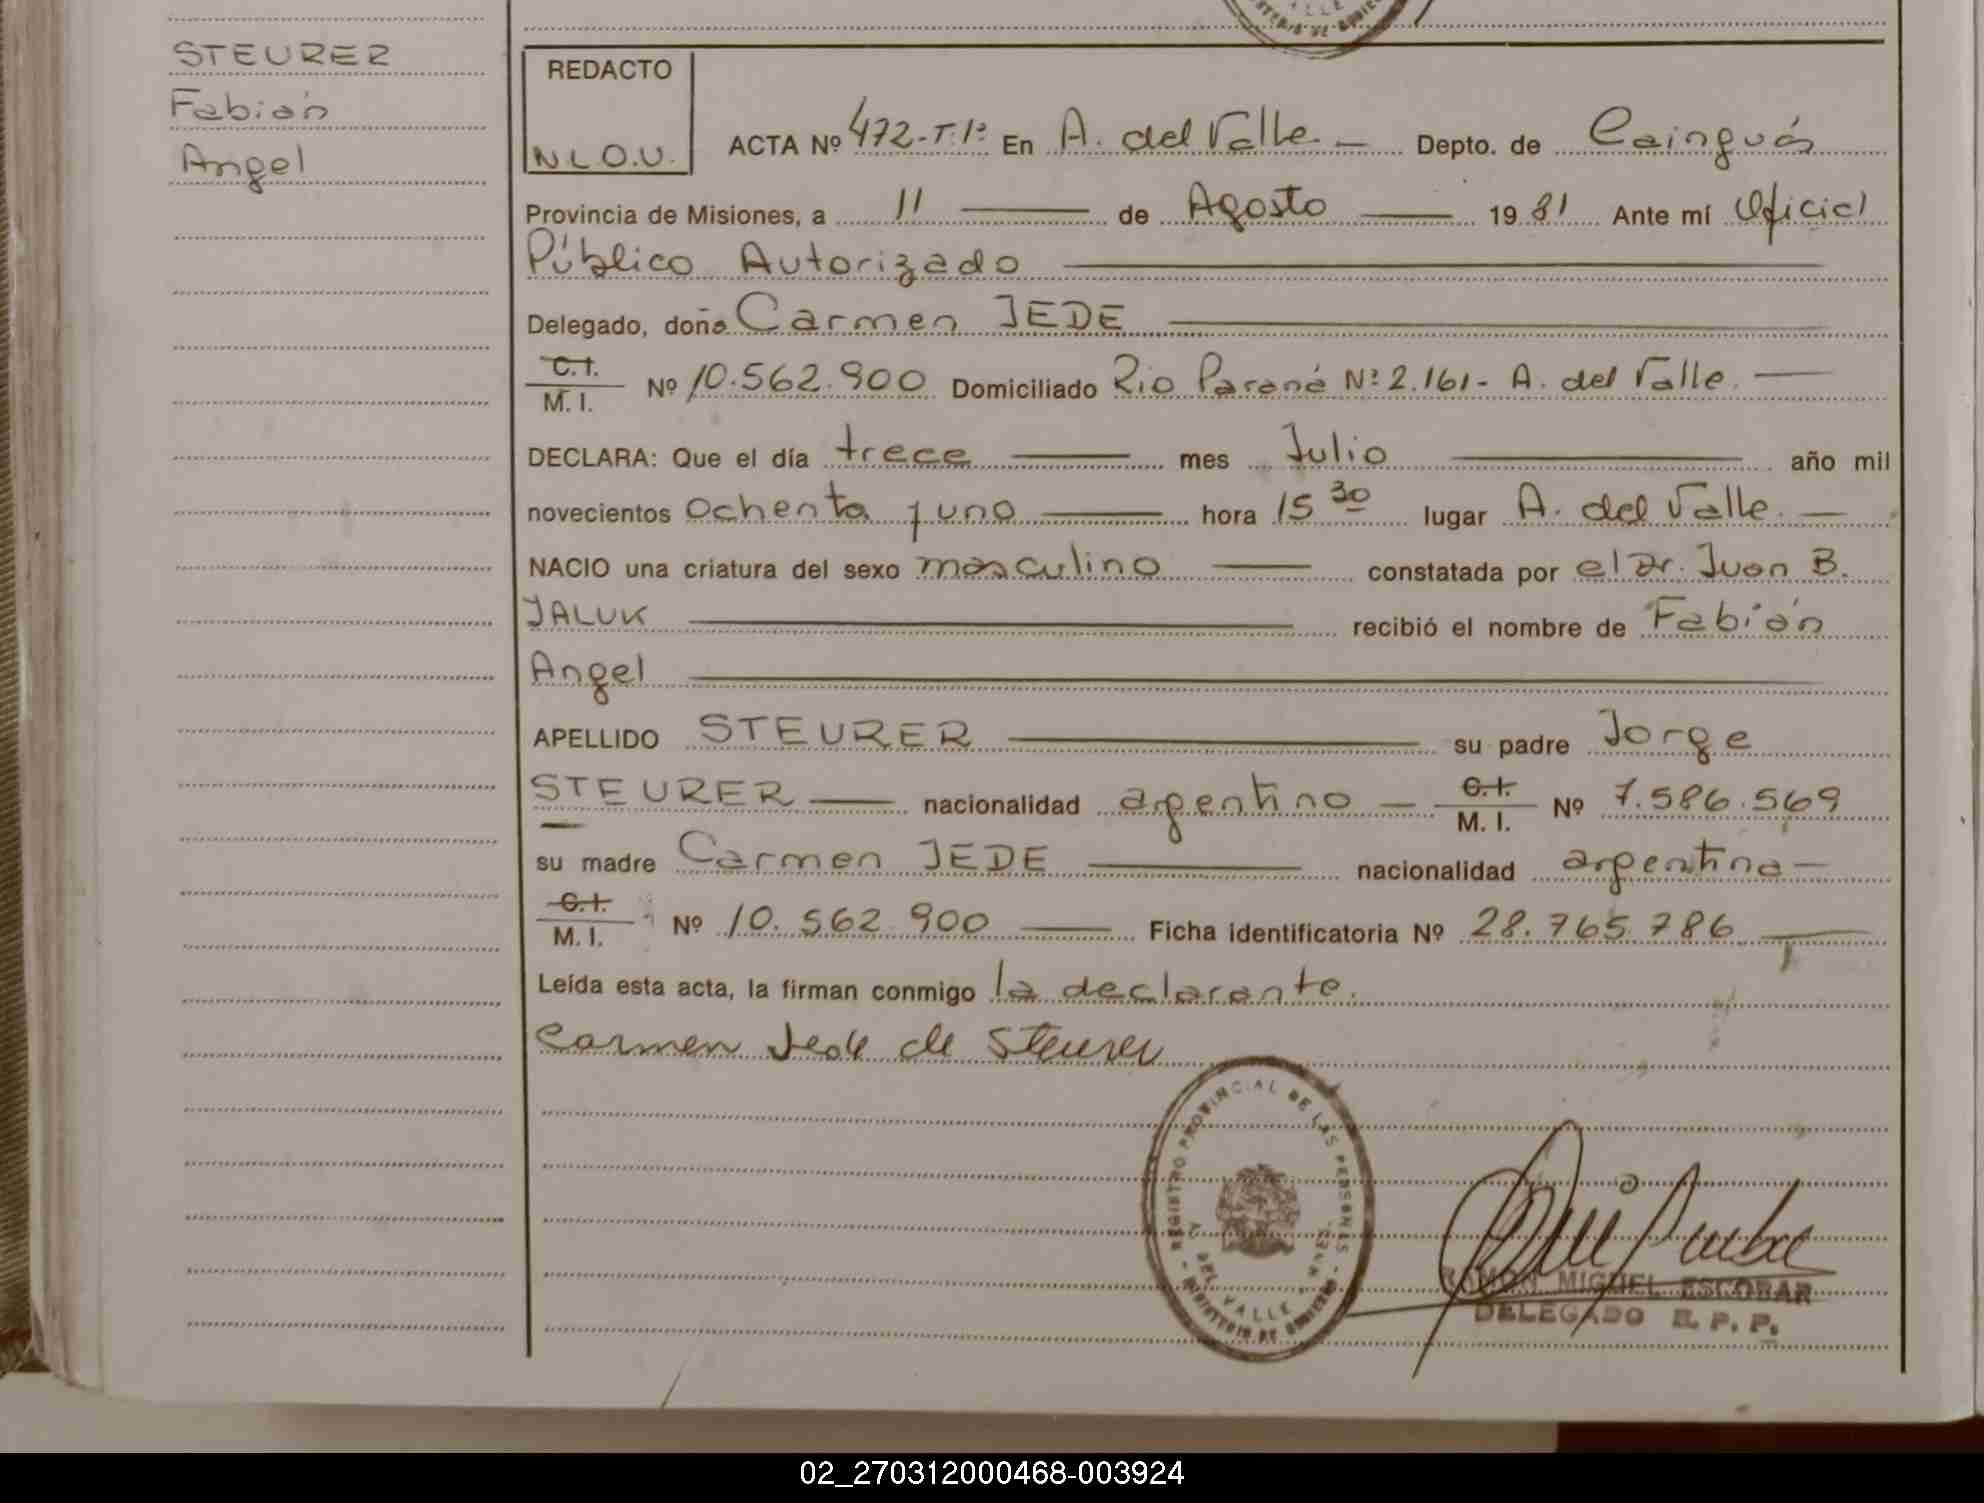 STEURER
Fabián
Angel
REDACTO
N L O.U.
ACTA Nº 472-T.1º En A. del Valle.- Depto. de Cainguás
Provincia de Misiones, a 11 de Agosto 1981 Ante mí Oficial
Público Autorizado
Delegado, doña Carmen JEDE
C.I. M. I. Nº 10.562.900 Domiciliado Rio Paraná Nº 2.161- A. del Valle.
DECLARA: Que el día trece mes Julio año mil
novecientos ochenta y uno hora 15 30 lugar A. del Valle.
NACIO una criatura del sexo masculino constatada por el Dr. Juan B.
JALUK recibió el nombre de Fabián
Angel
APELLIDO STEURER su padre Jorge
STEURER nacionalidad argentino C.I. M. I. Nº 7.586.569
su madre Carmen JEDE nacionalidad argentina
C.I. M. I. Nº 10.562.900 Ficha identificatoria Nº 28.765.786
Leída esta acta, la firman conmigo la declarante.
Carmen Jede de Steurer
REGISTRO PROVINCIAL DE LAS PERSONAS
A DEL VALLE
MINISTERIO DE GOBIERNO
RAMON MIGUEL ESCOBAR
DELEGADO R. P. P.
02_270312000468-003924